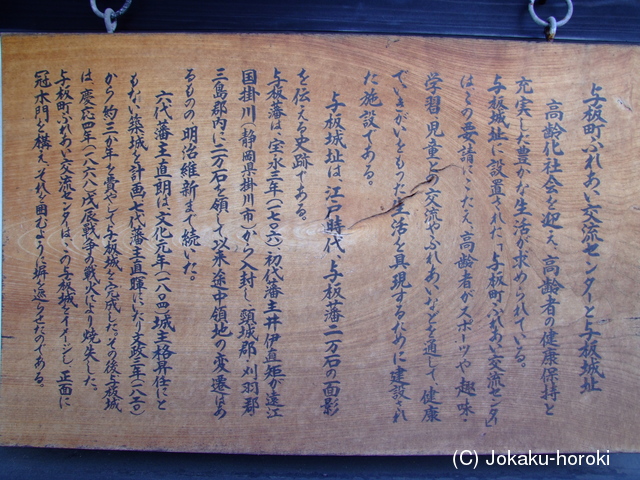 与板町ふれあい交流センターと与板城址
高齢化社会を迎え、高齢者の健康保持と
充実した豊かな生活が求められている。
与板城址に設置された「与板町ふれあい交流センター」
はその要請にこたえ、高齢者がスポーツや趣味・
学習、児童との交流やふれあいなどを通して、健康
でいきがいをもった生活を具現するために建設され
た施設である。
与板城址は、江戸時代、与板藩二万石の面影
を伝える史跡である。
与板藩は、宝永三年(一七〇六)初代藩主井伊直矩が遠江
国掛川(静岡県掛川市)から入封し、頸城郡、刈羽郡
三島郡内に二万石を領して以来、途中領地の変遷はあ
るものの、明治維新まで続いた。
六代藩主直朗は文化元年(一八〇四)城主格昇任にと
もない築城を計画、七代藩主直暉にいたり文政三年(一八二〇)
から約三か年を費やして与板城を完成した。その後与板城
は、慶応四年(一八六八)戊辰戦争の戦火により焼失した。
与板町ふれあい交流センターは、この与板城をイメージし、正面に
冠木門を構え、それを囲むように塀を巡らせたのである。
(C) Jokaku-horoki